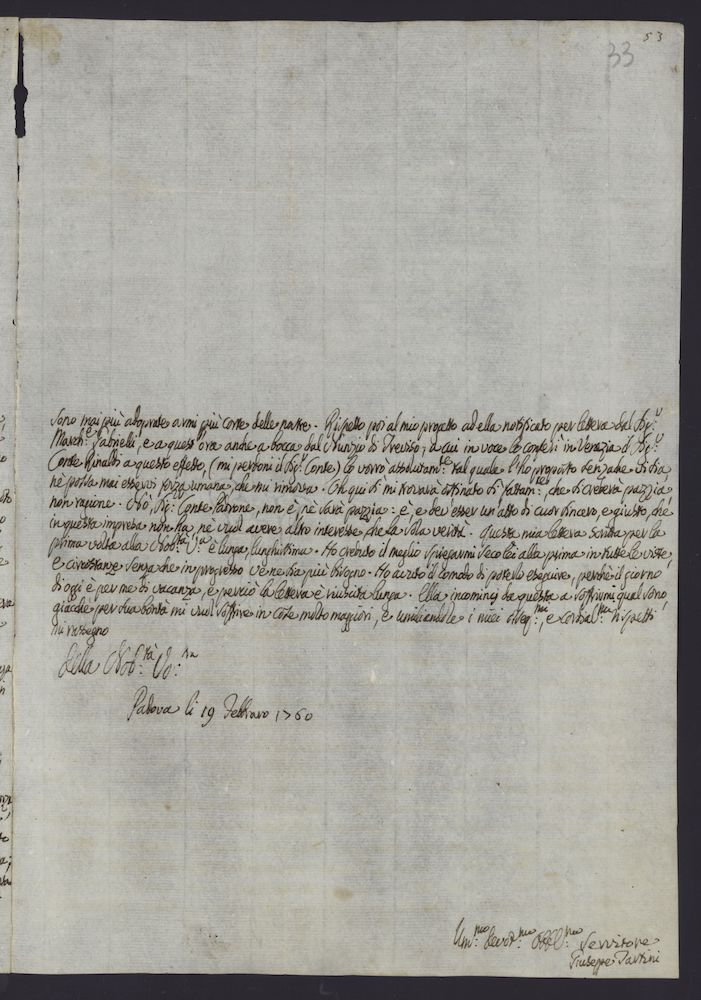 53
33
sono mai più adoprate armi più corte delle nostre. Rispetto poi al mio progetto ad ella notificato per lettera dal Sig.r
March.e Gabrielli, e a quest'ora anche a bocca dal Nunzio di Treviso, a cui in voce lo conferì in Venezia il Sig.r
Conte Rinaldi a questo effetto, (mi perdoni il Sig.r Conte) lo vorrò assolutam.te tal quale l'ho proposto senza che vi sia
ne possa mai esservi forza umana, che mi rimova. In qui di mi trovarà ostinato di fattam.te, che si crederà pazzia,
non ragione. Ohò, Sig.r Conte Padrone, non è, nè sarà pazzia: è, e dev'esser un atto di cuor sincero, e giusto, che
in questa impresa non ha, nè vuol avere altro interesse che la sola verità. Questa mia lettera scritta per la
prima volta alla Nob.tà V.a è lunga, lunghissima. Ho creduto il meglio spiegarmi seco lei alla prima in tutte le viste,
e circostanze senza che in progresso ve ne sia più bisogno. Ho avuto il comodo di poterlo eseguire, perchè il giorno
di oggi è per me di vacanza, e perciò la lettera è riuscita lunga. Ella incominci da questa a soffrirmi qual sono,
giacchè per sua bontà mi vuol soffrire in cose molto maggiori, e umiliandole i miei osseq.mi, e cordial.mi rispetti
mi rassegno
Della Nob.tà Vo.ra
Padova li 19 Febbraro 1760
Um.mo Devot.mo Obbl.mo Servitore
Giuseppe Tartini